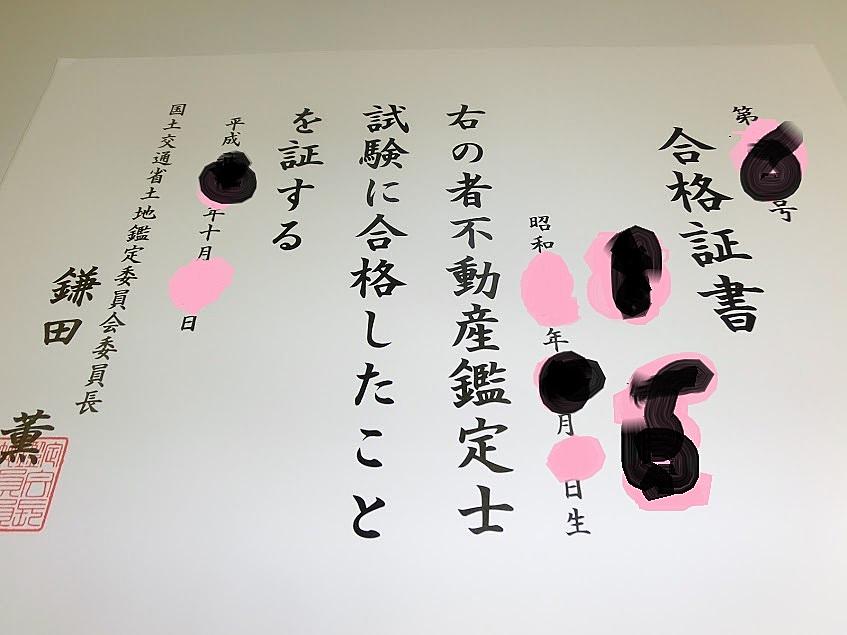 第 号
合格証書
昭和 年 月 日生
右の者不動産鑑定士
試験に合格したこと
を証する
平成 年十月 日
国土交通省土地鑑定委員会委員長
鎌田 薫